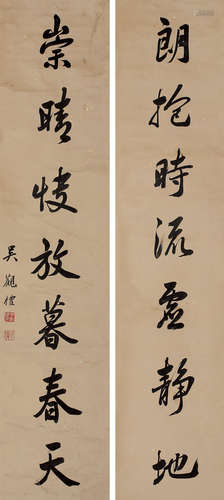 朗抱時流虛静地
崇晴悽放暮春天
吳觀禮